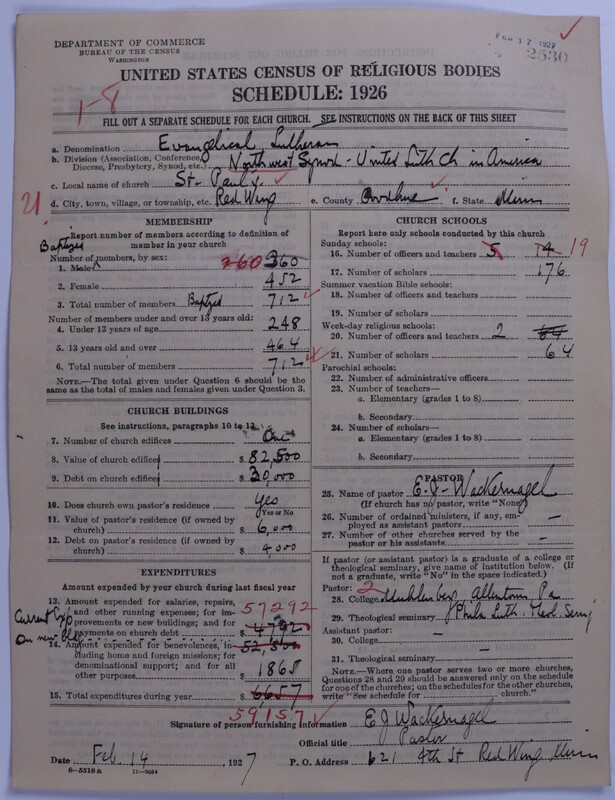 DEPARTMENT OF COMMERCE
BUREAU OF THE CENSUS
WASHINGTON
FEB 17 1927
2530
UNITED STATES CENSUS OF RELIGIOUS BODIES
SCHEDULE: 1926
1-8
FILL OUT A SEPARATE SCHEDULE FOR EACH CHURCH. SEE INSTRUCTIONS ON THE BACK OF THIS SHEET
a. Denomination Evangelical Lutheran
b. Division (Association, Conference, Diocese, Presbytery, Synod, etc.) Northwest Synod - United Luth Ch in America
c. Local name of church St. Paul's
21
d. City, town, village, or township, etc. Red Wing e. County Goodhue f. State Minn
MEMBERSHIP
Report number of members according to definition of
member in your church
Baptized
Number of members, by sex:
1. Male 260 360
2. Female 452
3. Total number of members Baptized 712
Number of members under and over 13 years old:
4. Under 13 years of age 248
5. 13 years old and over 464
6. Total number of members 712
NOTE.—The total given under Question 6 should be
same as the total of males and females given under Question 3.
CHURCH BUILDINGS
See instructions, paragraphs 10 to 12
7. Number of church edifices One
8. Value of church edifices $ 82,500
9. Debt on church edifices $ 30,000
10. Does church own pastor's residence? Yes
Yes or No
11. Value of pastor's residence (if owned by
church) $ 6,000
12. Debt on pastor's residence (if owned by
church) $ 4000
EXPENDITURES
Amount expended by your church during last fiscal year
13. Amount expended for salaries, repairs,
and other running expenses; for im-
provements or new buildings; and for
payments on church debt $ 4792
57292
Current Exp
On new
52,500
14. Amount expended for benevolences, in-
cluding home and foreign missions; for
denominational support; and for all
other purposes $ 1865
15. Total expenditures during year $ 6657
59157
CHURCH SCHOOLS
Report here only schools conducted by this church
Sunday schools:
16. Number of officers and teachers 5 14 19
17. Number of scholars 176
Summer vacation Bible schools:
18. Number of officers and teachers
19. Number of scholars
Week-day religious schools:
20. Number of officers and teachers 2 64
21. Number of scholars 64
Parochial schools:
22. Number of administrative officers
23. Number of teachers—
a. Elementary (grades 1 to 8)
b. Secondary
24. Number of scholars—
a. Elementary (grades 1 to 8)
b. Secondary
PASTOR
25. Name of pastor E. J. Wackernagel
(If church has no pastor, write "None")
26. Number of ordained ministers, if any, em-
ployed as assistant pastors –
27. Number of other churches served by the
pastor or his assistants –
If pastor (or assistant pastor) is a graduate of a college or
theological seminary, give name of institution below. (If
not a graduate, write "No" in the space indicated.)
Pastor: 2
28. College Muhlenberg, Allentown Pa
29. Theological seminary Phila Luth. Theol. Semy
Assistant pastor:
30. College –
31. Theological seminary –
NOTE.—Where one pastor serves two or more churches,
Questions 28 and 29 should be answered only on the schedule
for one of the churches; on the schedules for the other churches,
write "See schedule for church."
Signature of person furnishing information E J Wackernagel
Official title Pastor
Date Feb. 14 1927 P. O. Address 621 4th St Red Wing, Minn
8-5518a 11-9054